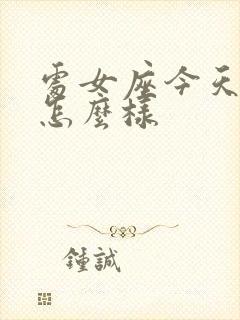 處女座今天
怎麼樣
鍾誠